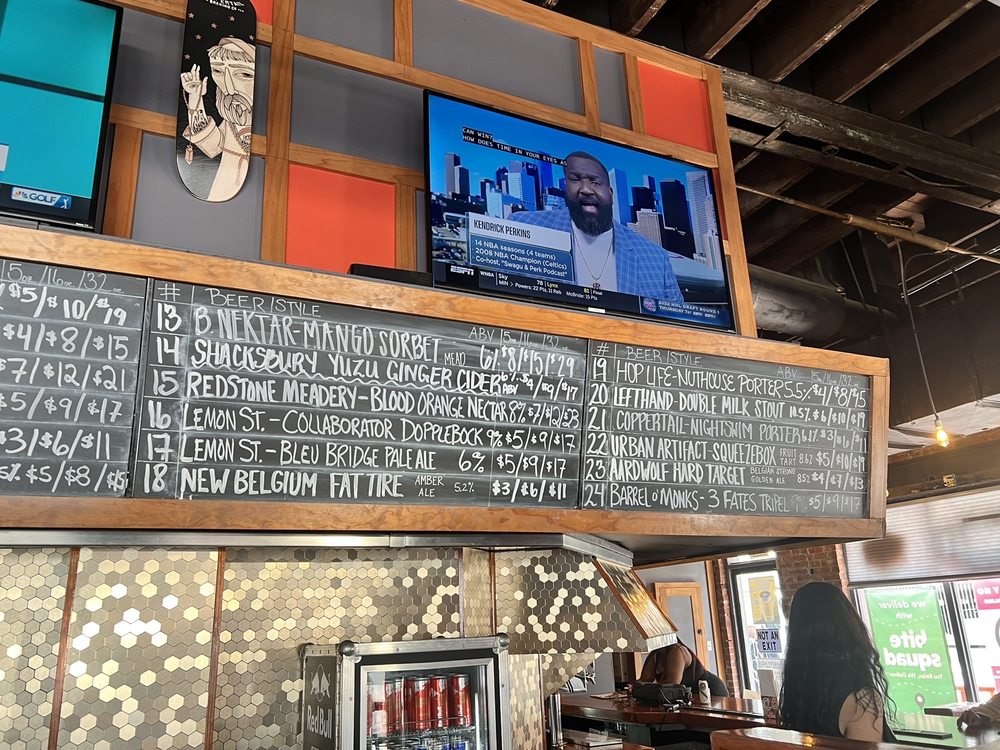 GOLF
CAN WIN?
HOW DOES TIME IN YOUR EYES AS
KENDRICK PERKINS
14 NBA seasons (4 teams)
2008 NBA Champion (Celtics)
Co-host, "Swagu & Perk Podcast"
ESPN
WNBA
Sky 78 Lynx 81 Final
MIN > Powers: 22 Pts, 11 Reb McBride: 15 Pts
2022 NHL ROUND 1
THURSDAY 7PM ESPN
5oz/16oz/32oz
$5/$10/19
$4/$8/$15
$7/$12/$21
$5/$9/$17
$3/$6/$11
5% $5/$8/$15
# BEER/STYLE ABV 5oz/16oz/32oz
13 B. NEKTAR-MANGO SORBET MEAD 6% $8/$15/$29
14 SHACKSBURY YUZU GINGER CIDER ABV $9/$17
15 REDSTONE MEADERY-BLOOD ORANGE NECTAR 8% $7/$12/$23
16 LEMON ST.-COLLABORATOR DOPPLEBOCK 9% $5/$9/$17
17 LEMON ST.-BLEU BRIDGE PALE ALE 6% $5/$9/$17
18 NEW BELGIUM FAT TIRE AMBER ALE 5.2% $3/$6/$11
# BEER/STYLE ABV 5oz/16oz/32oz
19 HOP LIFE-NUTHOUSE PORTER 5.5% $4/$8/$15
20 LEFTHAND-DOUBLE MILK STOUT 10.5% $6/$10/$19
21 COPPERTAIL-NIGHTSWIM PORTER $3/$6/$11
22 URBAN ARTIFACT-SQUEEZEBOX FRUIT TART 8% $5/$10/$19
23 AARDWOLF HARD TARGET BELGIAN STRONG GOLDEN ALE 8.5% $4/$7/$13
24 BARREL O' MONKS-3 FATES TRIPEL 9% $5/$9/$17
Red Bull
NOT AN EXIT
we deliver
with
bite
squad
You Relax, We Deliver.